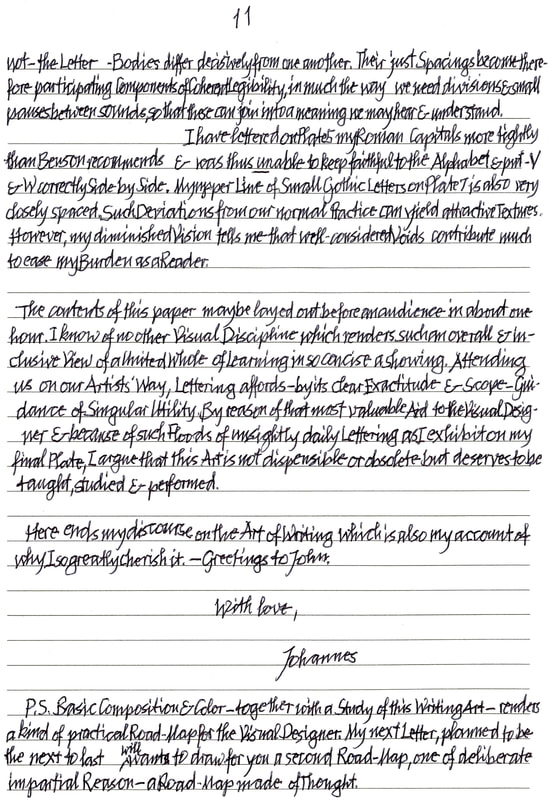 11
not-the Letter-Bodies differ decisively from one another. Their just Spacings become there-
fore participating Components of Coherent Legibility, in much the way we need divisions & small
pauses between sounds, so that these can join into a meaning we may hear & understand.
I have lettered on Plate 5 my Roman Capitals more tightly
than Benson recommends & was thus unable to keep faithful to the Alphabet & put V
& W correctly Side by Side. My upper Line of Small Gothic Letters on Plate 7 is also very
closely spaced. Such Deviations from our normal Practice can yield attractive Textures.
However, my diminished Vision tells me that well-considered Voids contribute much
to ease my Burden as a Reader.
The contents of this paper may be layed out before an audience in about one
hour. I know of no other Visual Discipline which renders such an overall & in-
clusive View of a limited Whole of Learning in so concise a showing. Attending
us on our Artists' Way, Lettering affords-by its clear Exactitude & Scope-Gui-
dance of Singular Utility. By reason of that most valuable Aid to the Visual Desig-
ner & because of such Floods of unsightly daily Lettering as I exhibit on my
final Plate, I argue that this Art is not dispensible or obsolete but deserves to be
taught, studied & performed.
Here ends my discourse on the Art of Writing which is also my account of
why I so greatly cherish it. - Greetings to John.
With love,
Johannes
P.S. Basic Composition & Color-together with a Study of this Writing Art-renders
a kind of practical Road-Map for the Visual Designer. My next Letter, planned to be
the next to last will wants to draw for you a second Road-Map, one of deliberate
impartial Reason-a Road-Map made of Thought.